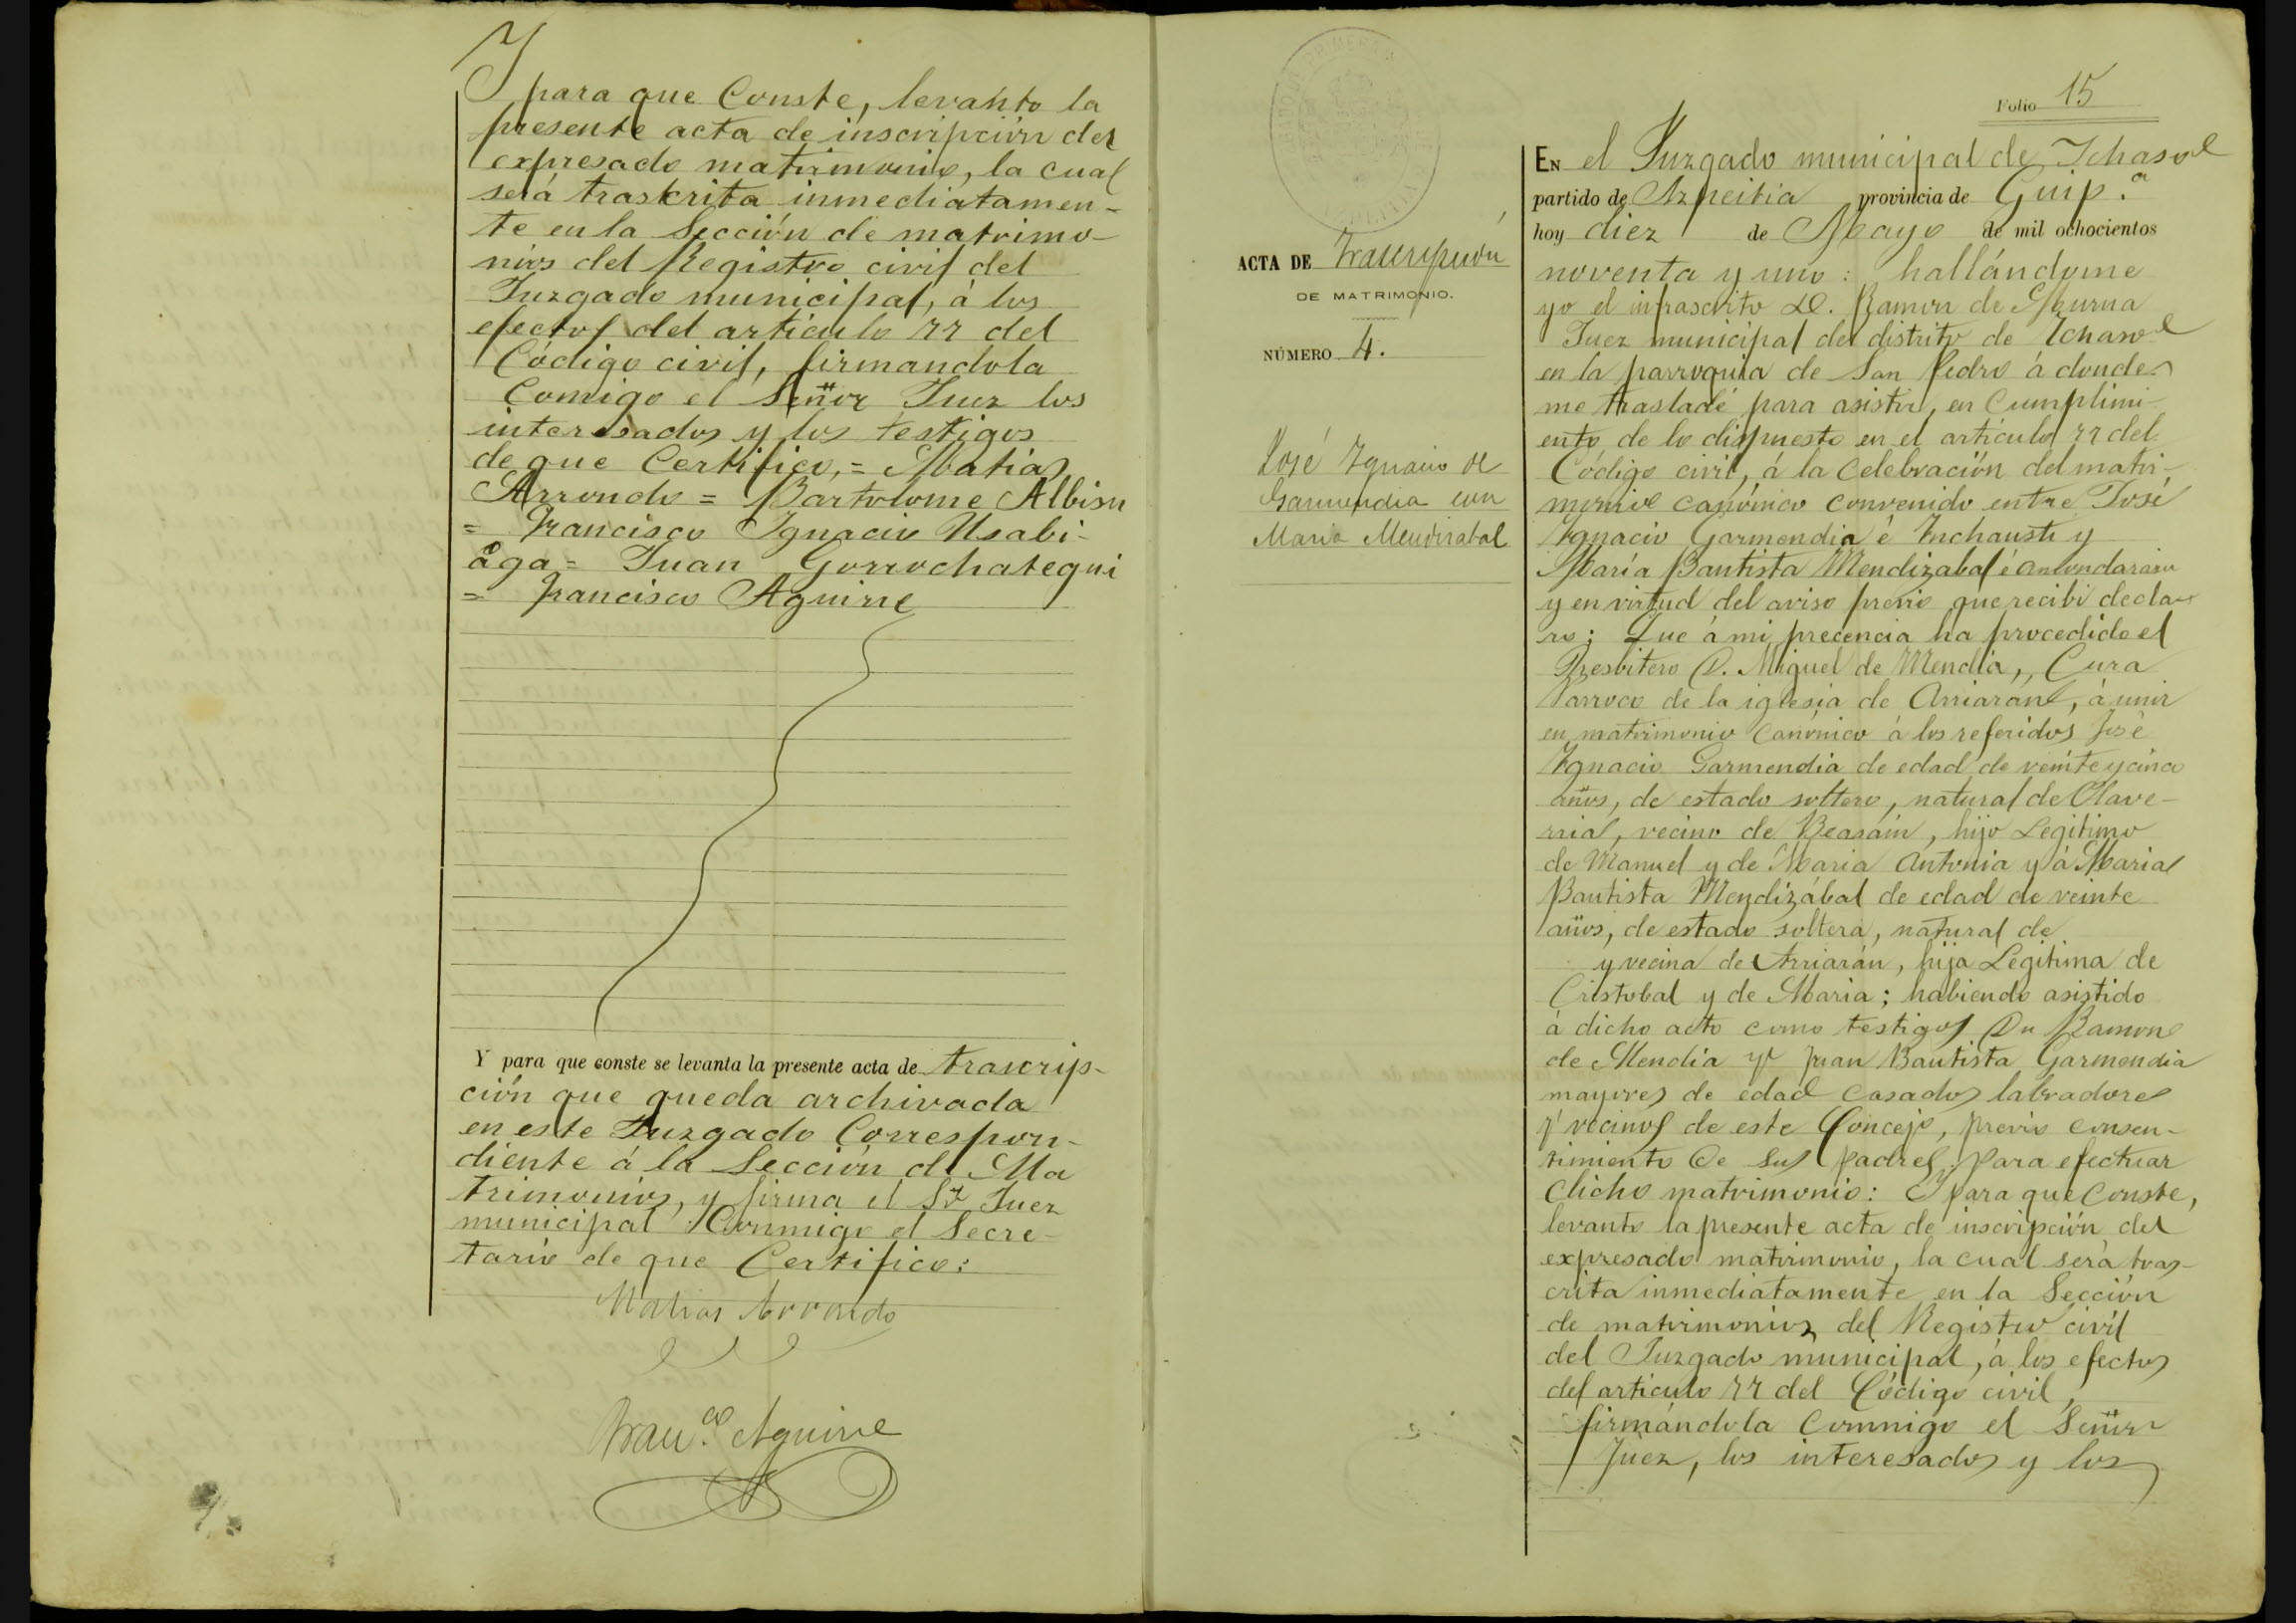 Y para que Conste, levanto la
presente acta de inscripción del
expresado matrimonio, la cual
será traskrita inmediatamen-
te en la Sección de matrimo-
nios del Registro civil del
Juzgado municipal, á los
efectos del artículo 77 del
Código civil, firmandola
Comigo el Señor Juez los
interesados y los testigos
de que Certifico, = Matías
Arrondo = Bartolome Albisu
= Francisco Ignacio Usabi-
aga = Juan Gorrochategui
= Francisco Aguirre
Y para que conste se levanta la presente acta de trascrip-
ción que queda archivada
en este Juzgado Correspon-
diente á la Sección de Ma
trimonios, y firma el Sr Juez
municipal Conmigo el Secre-
tario de que Certifico:
Matias Arrondo
Franco Aguirre
Folio 15
ACTA DE Trascripción
DE MATRIMONIO.
NÚMERO 4.
José Ignacio de
Garmendia con
Maria Mendizabal
EN el Juzgado municipal de Ichaso
partido de Azpeitia provincia de Guip.a
hoy diez de Mayo de mil ochocientos
noventa y uno: hallándome
yo el infrascrito D. Ramon de Murua
Juez municipal del distrito de Ichaso
en la parroquia de San Pedro á donde
me trasladé para asistir, en Cumplimi-
ento de lo dispuesto en el artículo 77 del
Código civil, á la Celebración del matri-
monio canónico convenido entre José
Ignacio Garmendia é Inchausti y
María Bautista Mendizabal é
y en virtud del aviso previo que recibi decla-
ro: Que á mi precencia ha procedido el
Presbitero D. Miguel de Mendia, Cura
Parroco de la iglesia de Arriaran, á unir
en matrimonio Canónico á los referidos José
Ignacio Garmendia de edad de veinte y cinco
años, de estado soltero, natural de Olave-
rria, vecino de Beasáin, hijo Legitimo
de Manuel y de Maria Antonia y á Maria
Bautista Mendizábal de edad de veinte
años, de estado soltera, natural de
y vecina de Arriarán, hija Légitima de
Cristobal y de Maria; habiendo asistido
á dicho acto como testigos Dn Ramon
de Mendia y Juan Bautista Garmendia
mayores de edad Casados labradores
y vecinos de este Concejo, previo consen-
timiento de sus padres para efectuar
dicho matrimonio: Y para que Conste,
levanto la presente acta de inscripción del
expresado matrimonio, la cual será tras-
crita inmediatamente en la Sección
de matrimonios del Registro civil
del Juzgado municipal, á los efectos
del articulo 77 del Código civil,
firmándola Conmigo el Señor
Juez, los interesados y los